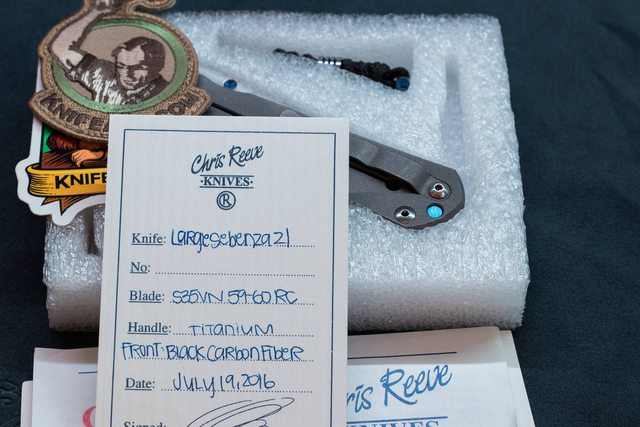 KNIFE
KNIFE
Chris Reeve
·KNIVES·
®
Knife: Large Sebenza 21
No:
Blade: S35VN 59-60 RC
Handle: Titanium
Front: Black Carbon Fiber
Date: July 19, 2016
Signed:
Chris Reeve
KNIVES